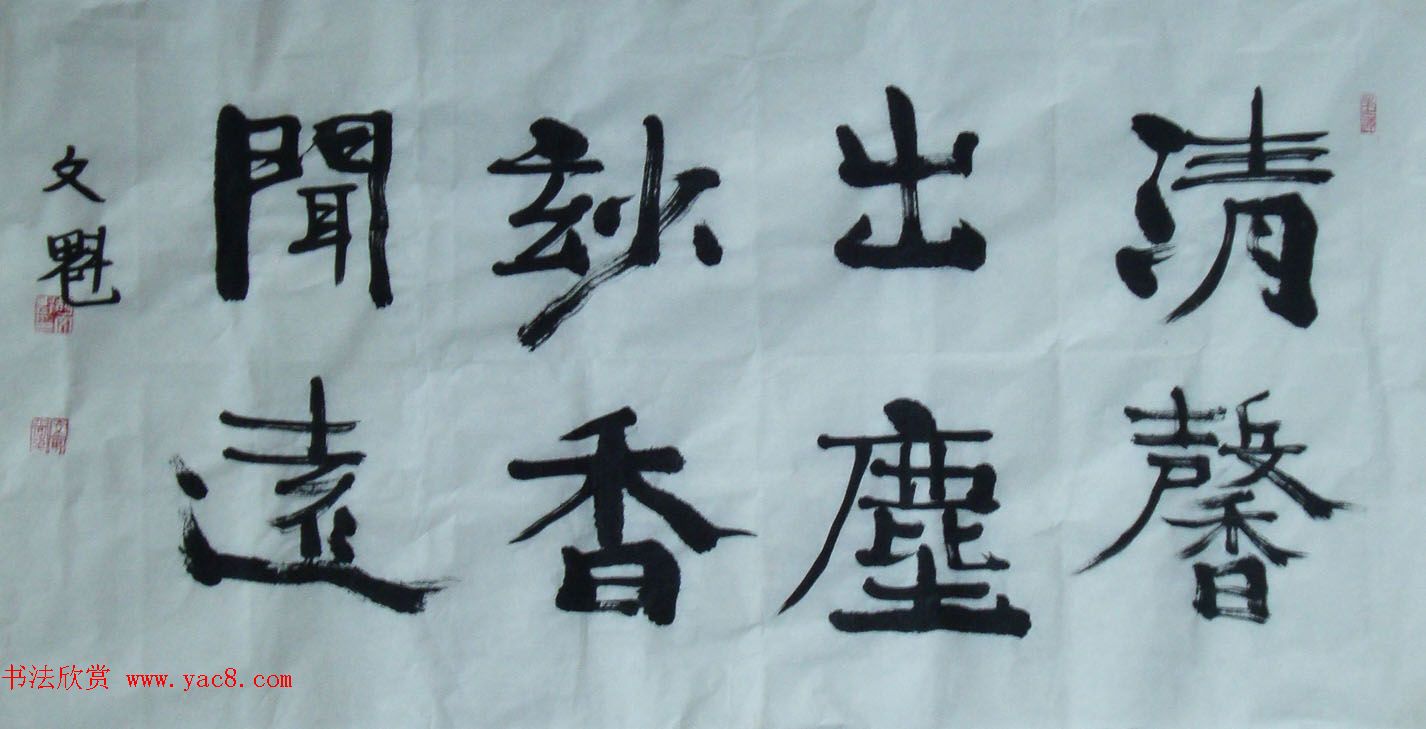 清馨
出塵
玅香
聞遠
文魁
书法欣赏 www.yac8.com